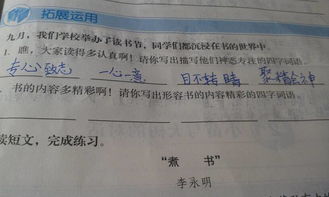 拓展运用
九月,我们学校举办了读书节,同学们都沉浸在书的世界中。
1. 瞧,大家读得多认真啊!请你写出描写他们神态专注的四字词语。
专心致志 一心一意 目不转睛 聚精会神
书的内容多精彩啊!请你写出形容书的内容精彩的四字词语。
读短文,完成练习。
“煮 书”
李永明